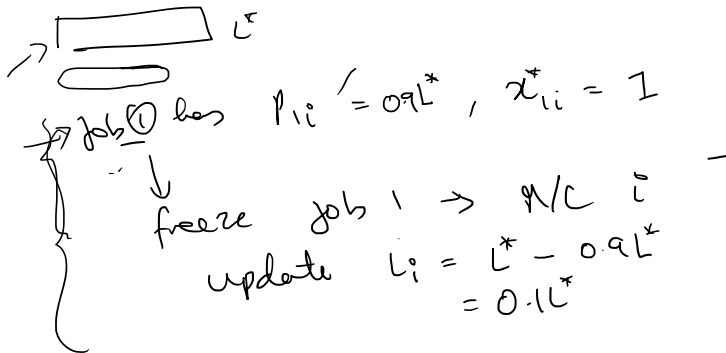 L*
Job ① has P₁ᵢ = 0.9L* , x*₁ᵢ = 1
freeze job 1 → M/C i
update Lᵢ = L* - 0.9L*
= 0.1L*